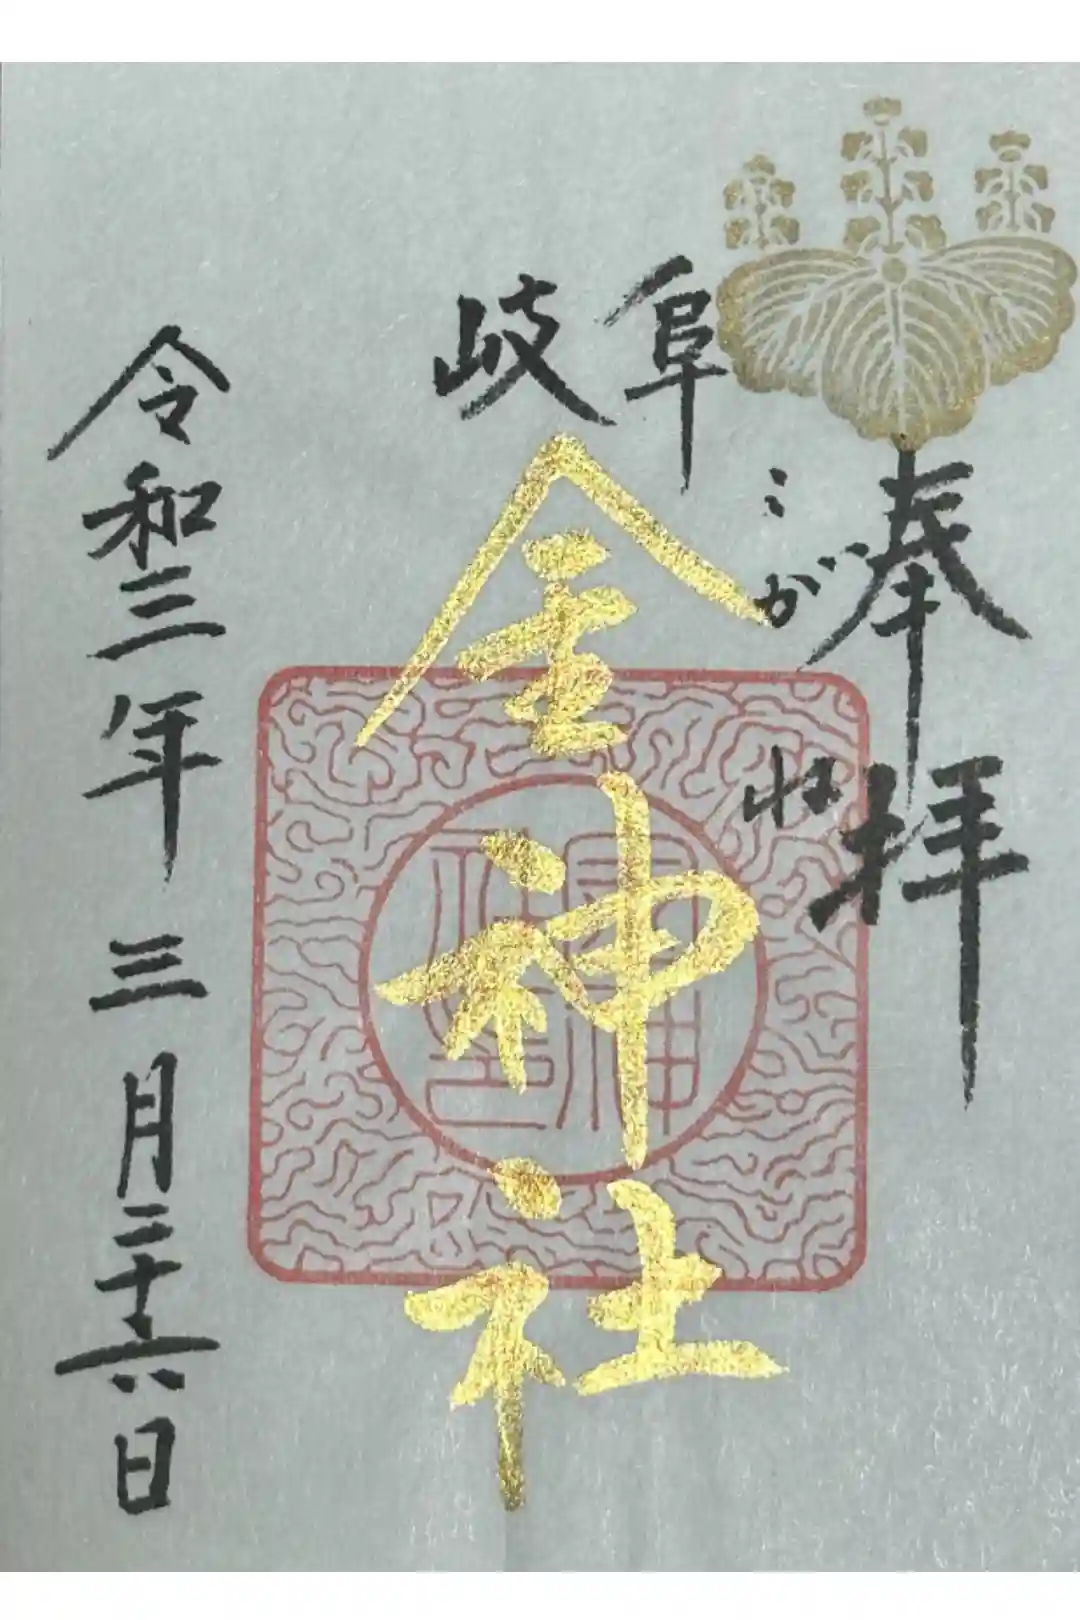 奉拝
岐阜
こがね
金神社
令和三年三月二十六日